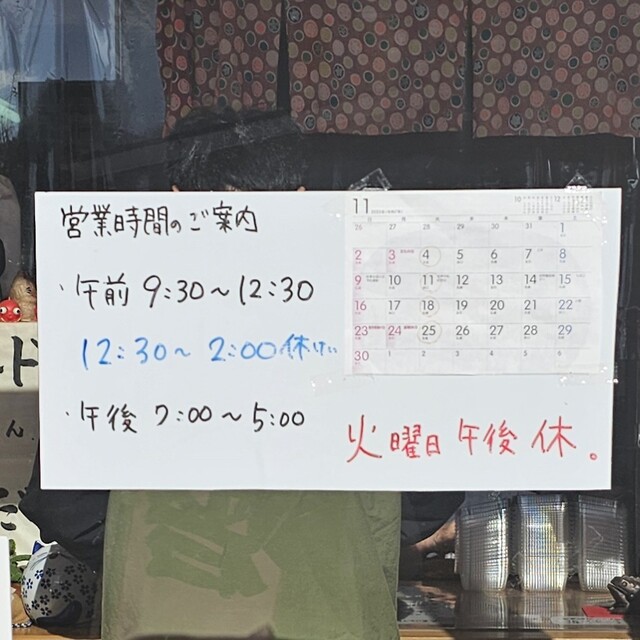 営業時間のご案内
・午前 9:30〜12:30
12:30〜 2:00 休けい
・午後 2:00〜5:00
11
26 27 28 29 30 31 1
2 3 4 5 6 7 8
9 10 11 12 13 14 15
16 17 18 19 20 21 22
23 24 25 26 27 28 29
30 1 2 3 4 5 6
火曜日 午後 休。